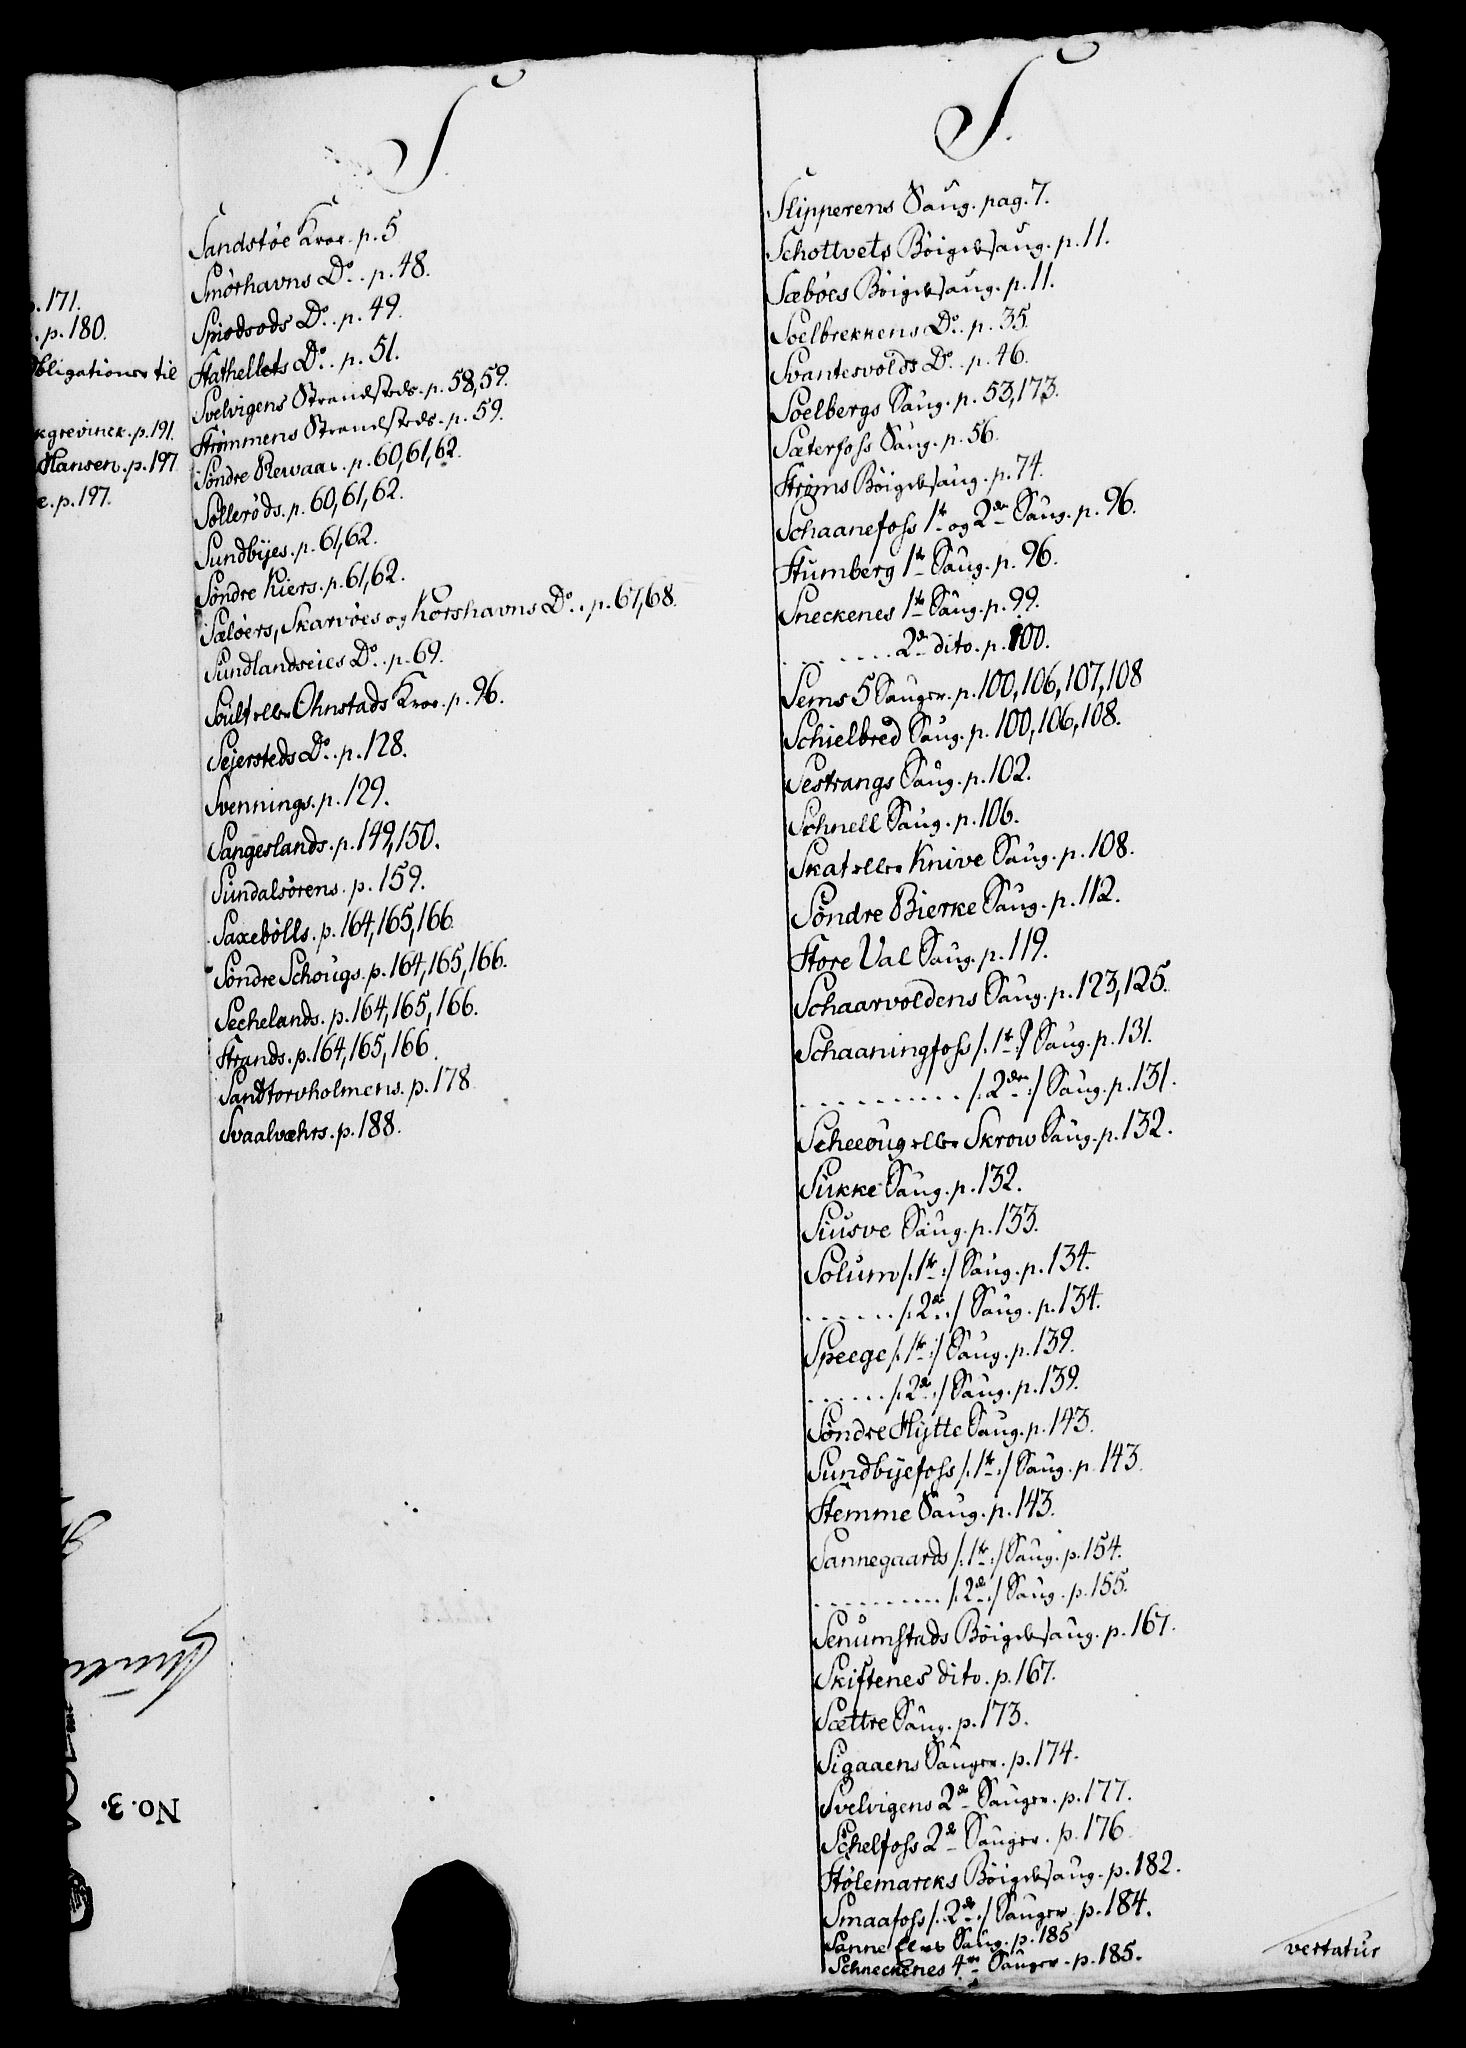 p. 171.
. p. 180.
Obligationer til
kgrevinck. p. 191.
Hansen. p. 197
e. p. 197.
No. 3.
S.
Sandstøe Kroe. p. 5
Smørhavns Do. p. 48.
Spiodsods Do. p. 49.
Stathellets Do. p. 51.
Svelvigens Strandsteds. p. 58, 59.
Strømmens Strandsteds. p. 59.
Søndre Revaas. p. 60, 61, 62.
Sølleröds. p. 60, 61, 62.
Sundbÿes. p. 61, 62.
Søndre Kiers. p. 61, 62.
Sæløers, Skarvöes og Korshavns Do. p. 67, 68.
Sundlandseies Do. p. 69.
Soult eller Ohnstads Kroe. p. 96.
Sejersteds Do. p. 128.
Svennings. p. 129.
Sangeslands. p. 149, 150.
Sundalsörens. p. 159.
Saxebölls. p. 164, 165, 166.
Søndre Schougs. p. 164, 165, 166.
Sechelands. p. 164, 165, 166.
Strands. p. 164, 165, 166.
Sandtorvholmens. p. 178
Svaalvæhrs. p. 188.
S.
Slipperens Saug. pag. 7.
Schottvets Böigdesaug. p. 11.
Sæböes Böigdesaug. p. 11.
Soelbrekkens Do. p. 35.
Svantesvolds Do. p. 46.
Soelbergs Saug. p. 53, 173.
Sæterfoss Saug. p. 56.
Strøms Böigdesaug. p. 74.
Schaanefoss 1te og 2den Saug. p. 96.
Stumberg 1te Saug. p. 96.
Sneckenes 1te Saug. p. 99.
. . . . . . . 2de dito. p. 100.
Sems 5 Sauger. p. 100, 106, 107, 108
Schielbred Saug. p. 100, 106, 108.
Sestrangs Saug. p. 102.
Schnell Saug. p. 106.
Skat eller Knive Saug. p. 108.
Søndre Bierke Saug. p. 112.
Store Val Saug. p. 119.
Schaarvoldens Saug. p. 123, 125.
Schaaningfoss /: 1te :/ Saug. p. 131.
. . . . . . . . . . /: 2den :/ Saug. p. 131.
Scheeoug eller Skrow Saug. p. 132.
Sukke Saug. p. 132.
Siusve Saug. p. 133.
Solum /: 1te :/ Saug. p. 134.
. . . . . . /: 2de :/ Saug. p. 134.
Speege /: 1te :/ Saug. p. 139.
. . . . . . /: 2de :/ Saug. p. 139.
Søndre Hÿtte Saug. p. 143.
Sundbÿefoss /: 1te :/ Saug. p. 143.
Stemme Saug. p. 143.
Sannegaards /: 1te :/ Saug. p. 154.
. . . . . . . . . . /: 2de :/ Saug. p. 155.
Senumstads Böigdesaug. p. 167.
Skiftenes dito. p. 167.
Sættre Saug. p. 173.
Sigaaens Sauger. p. 174.
Svelvigens 2de Sauger. p. 177.
Schelfoss 2de Sauger. p. 176
Stølemarcks Böigdesaug. p. 182.
Smaafoss /: 2de :/ Sauger p. 184.
Sanne Saug. p. 185
Schneckenes 4re Sauger. p. 185.
vertatur